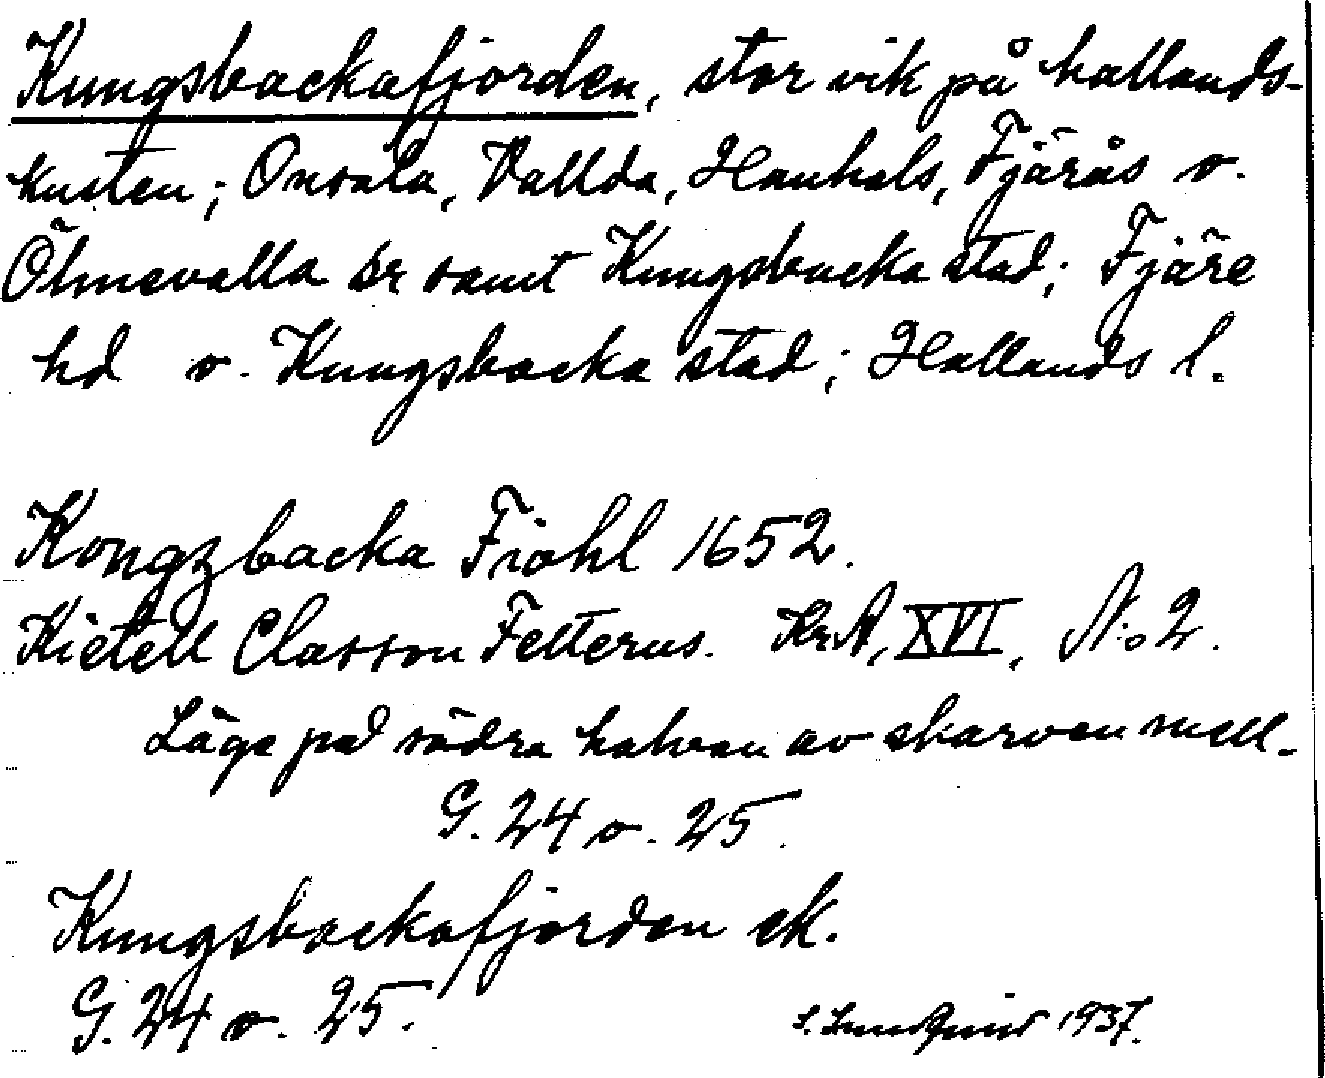 Kungsbackafjorden, stor vik på hallands-
kusten; Onsala, Vallda, Hanhals, Fjärås o.
Ölmevalla snr samt Kungsbacka stad; Fjäre
hd o. Kungsbacka stad; Hallands l.
Kongzbacka Fiohl 1652.
Kietell Classon Felterus. KrA, XVI, N:o 2.
Läge på södra halvan av skarven mell.
G. 24 o. 25.
Kungsbackafjorden ek.
G. 24 o. 25.
1937.